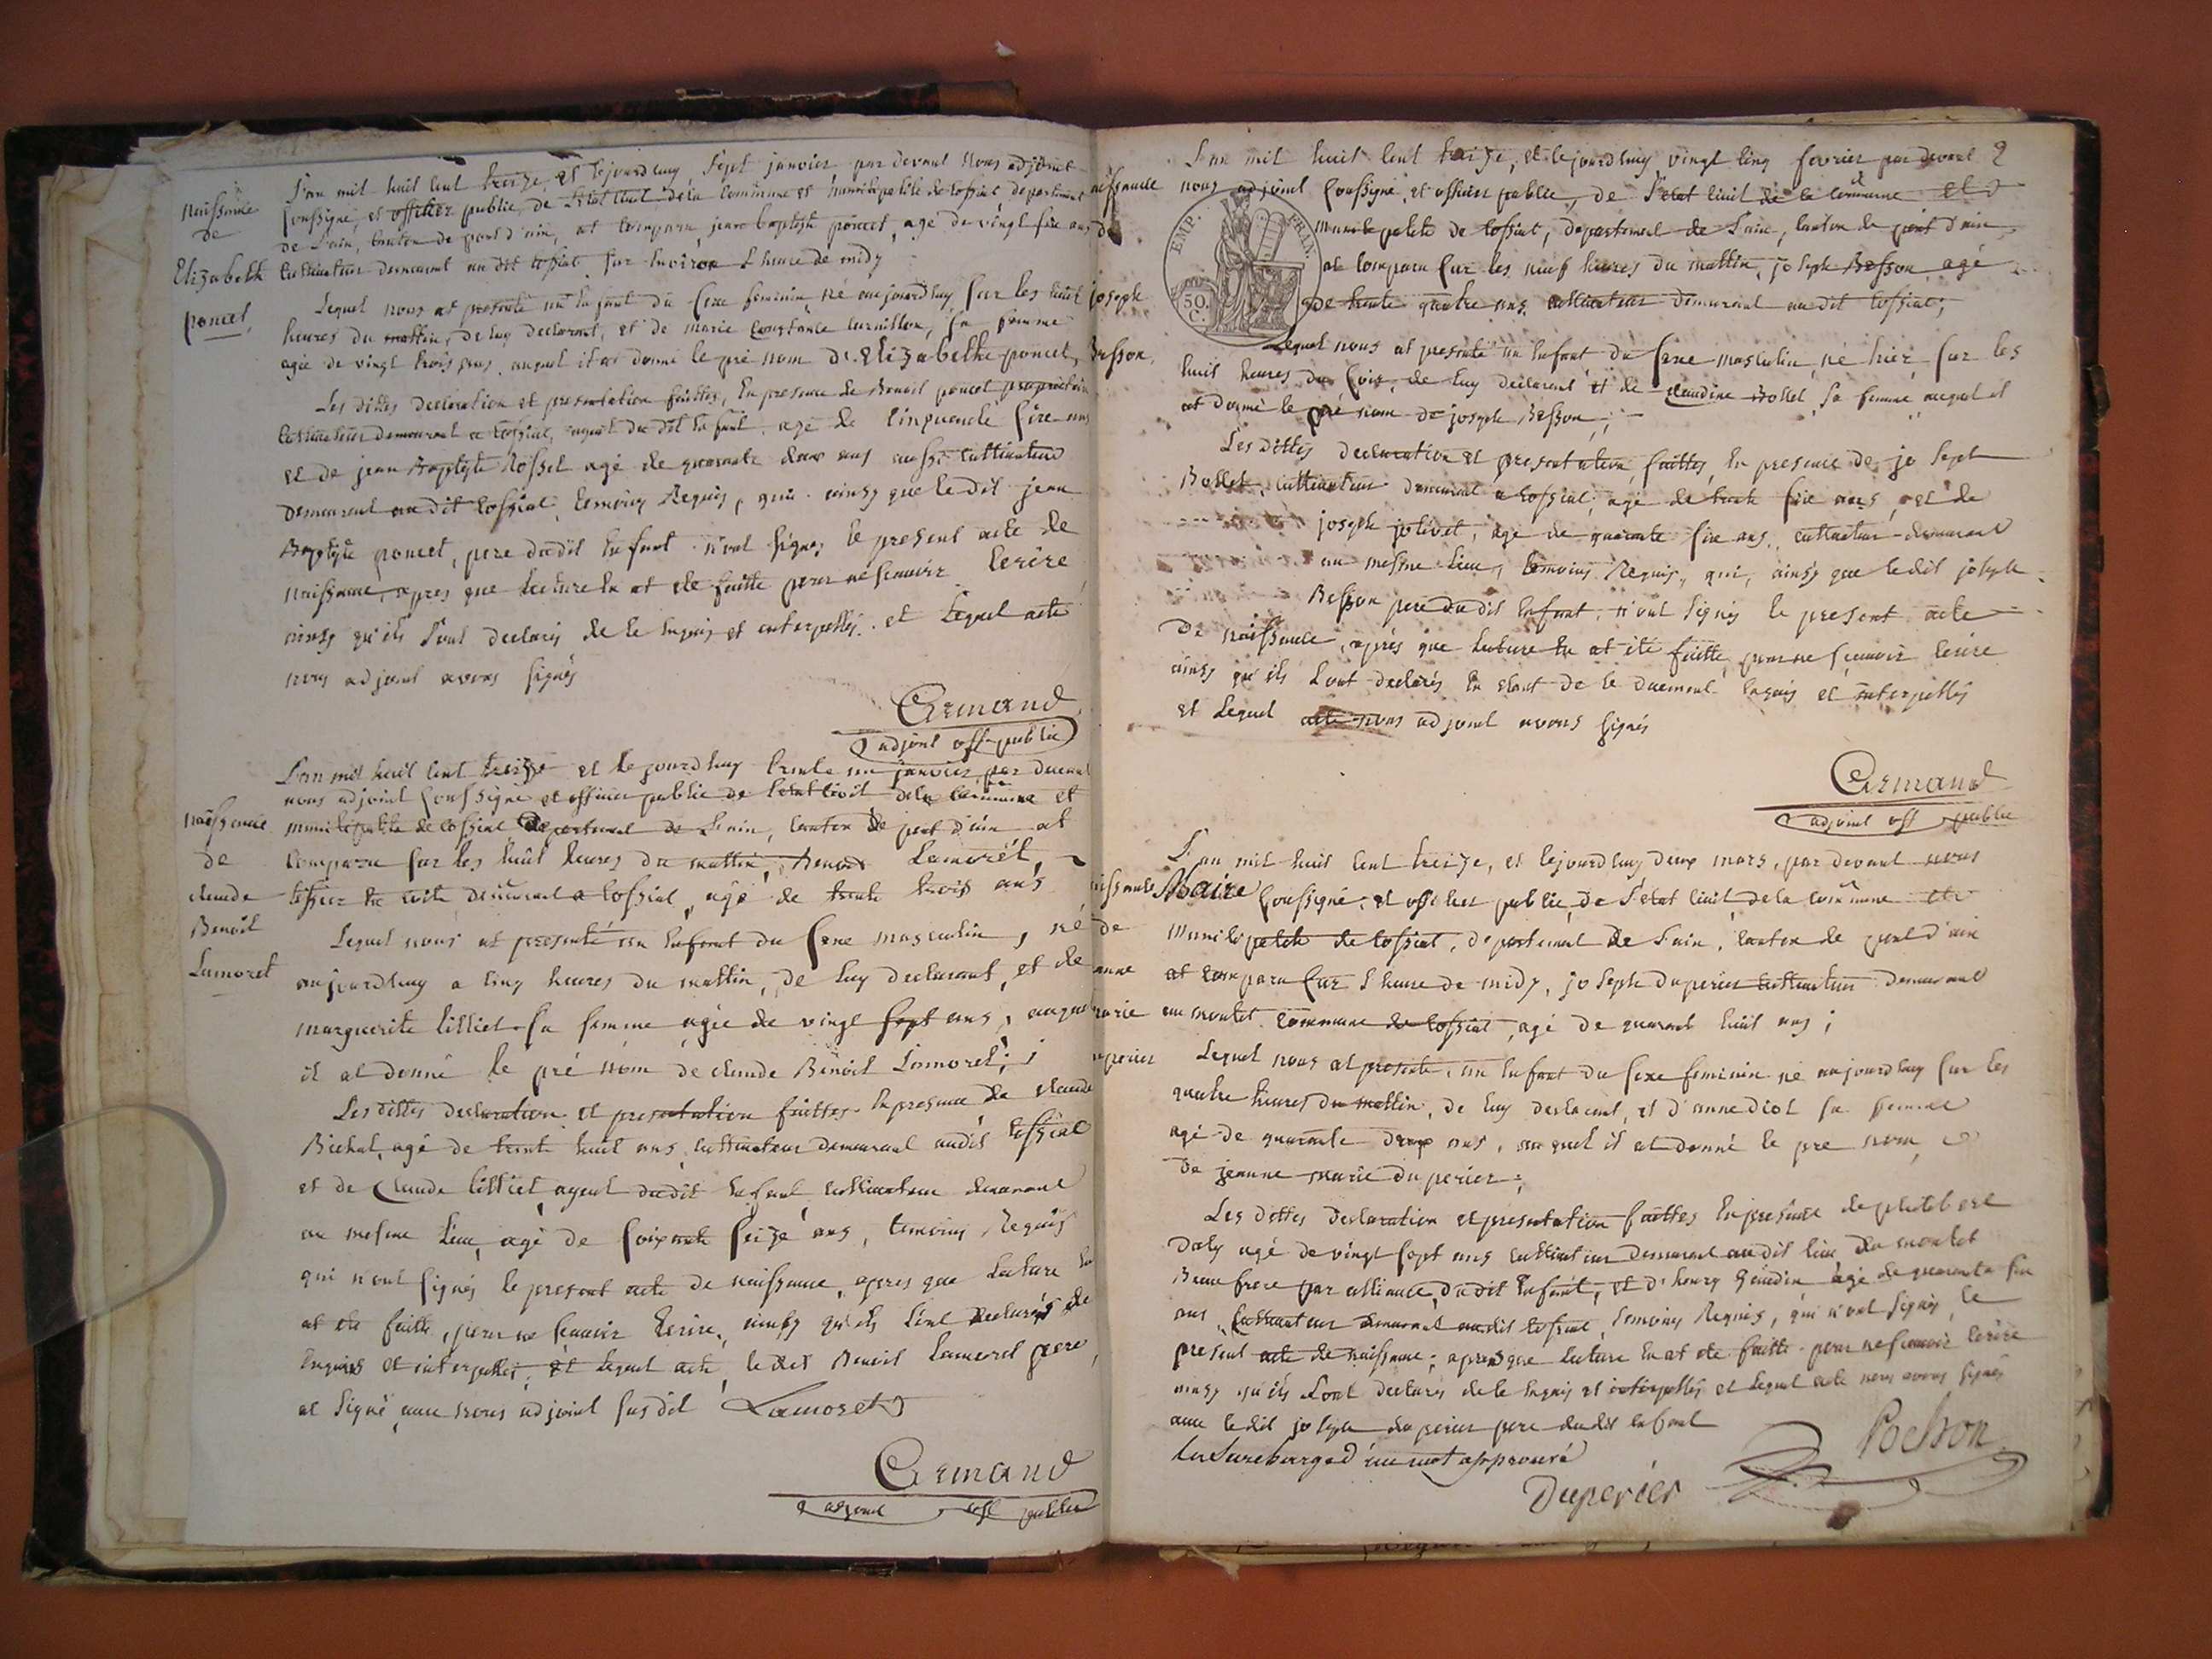 naissance
de
Elizabeth
poncet
L'an mil huit cent treize, et lejourdhuy sept janvier par devant nous adjoint
soussigné, et officier public, de l'état civil de la commune et municipalité de tossiat, departement
de l'ain, canton de pont d'ain, at comparu jean baptiste poncet, agé de vingt six ans
cultivateur demeurant au dit tossiat sur environ l'heure de midy
Lequel nous at presenté un enfant du sexe feminin né aujourdhuy sur les huit
heures du mattin, de luy declarant, et de marie Constance curnillon, sa femme
agée de vingt trois ans, auquel il at donné le pré nom d'Elizabethe poncet,
Les dittes declaration et presentation faittes, En presence de Benoit poncet proprietaire
cultivateur demeurant a tossiat, ayeul du dit enfant agé de cinquante six ans
et de jean Baptiste Rosset agé de quarante deux ans aussi cultivateur
demeurant au dit tossiat temoins Requis, qui ainsy que le dit jean
Baptiste poncet, pere du dit enfant n'ont signés le present acte de
naissance, apres que lecture en at été faitte pour ne scauoir Ecrire
ainsy qu'ils l'ont declarés de le enquis et interpellés. et Lequel acte
nous adjoint avons signés
Armand
adjoint off public
naissance
de
claude
Benoit
Lamoret
L'an mil huit cent treize et lejourdhuy trente un janvier par devant
nous adjoint soussigné et officier public de l'etat civil de la commune et
municipalité de tossiat departement de L'ain, canton de pont d'ain at
comparu sur les huit heures du mattin, Benoit Lamoret,
tissier en toile demeurant a tossiat, agé de trente trois ans
Lequel nous at presenté un enfant du sexe masculin, né
aujourdhuy a cinq heures du mattin, de luy declarant, et de
marguerite littiet sa femme agée de vingt sept ans, auquel
il at donné le pré nom de claude Benoit Lamoret;
Les dittes declaration et presentation faittes En presence de claude
Bichat, agé de trente huit ans, cultivateur demeurant audit tossiat
et de Claude littiet, ayeul du dit enfant, cultivateur demeurant
au mesme Lieu, agé de soixante seize ans, temoins Requis
qui n'ont signés le present acte de naissance, apres que lecture en
at été faitte, pour ne scauoir Ecrire, ainsy qu'ils L'ont declarés de
enquis et interpellés; et Lequel acte, le dit Benoit Lamoret pere,
at signé auec nous adjoint susdit Lamoret
Armand
adjoint off public
naissance
de
joseph
Besson,
L'an mil huit cent treize, et lejourdhuy vingt cinq fevrier par devant 2
nous adjoint soussigné, et officier public, de l'etat civil de la commune et
EMP. FRAN.
50. C.
municipalité de tossiat, departement de l'ain, canton de pont d'ain,
at comparu sur les neuf heures du mattin, joseph Besson, agé
de trente quatre ans cultivateur demeurant au dit tossiat;
Lequel nous at presenté un enfant du sexe masculin, né hier sur les
huit heures du soir, de luy declarant, et de claudine Bollet, sa femme auquel il
at donné le pré nom de joseph Besson;
Les dittes declaration et presentation faittes, En presence de joseph
Bollet, cultivateur demeurant a tossiat, agé de trente six ans, et de
joseph jolivet, agé de quarante six ans cultivateur demeurant
au mesme Lieu, temoins Requis, qui, ainsy que ledit joseph
Besson pere du dit enfant, n'ont signés le present acte
de naissance, aprés que lecture en at été faitte, pour ne scauoir Ecrire
ainsy qu'ils L'ont declarés En etant de le duement enquis et interpellés
et Lequel acte nous adjoint avons signés
Armand
adjoint off public
naissance
de
anne
marie
duperier
L'an mil huit cent treize, et lejourdhuy deux mars, par devant nous
Maire soussigné, et officier public, de l'etat civil, de la commune et
municipalité de tossiat, departement de L'ain, canton de pont d'ain
at comparu sur l'heure de midy, joseph duperier cultivateur demeurant
au montet commune de tossiat, agé de quarante huit ans;
Lequel nous at presenté, un enfant du sexe feminin né aujourdhuy sur les
quatre heures du mattin, de luy declarant, et d'anne diot sa femme
agé de quarante deux ans, auquel il at donné le pre nom
de jeanne marie duperier;
Les dittes declaration et presentation faittes En presence de philibert
agé de vingt sept ans cultivateur demeurant au dit lieu du montet
Beau frere par alliance, du dit enfant, et d'henry Gaudin agé de quarante six
ans, Cultivateur demeurant au dit tossiat, temoins Requis, qui n'ont signés, le
present acte de naissance; apres que lecture en at été faitte pour ne scauoir Ecrire
ainsy qu'ils L'ont declarés de le enquis et interpellés et Lequel acte nous avons signés
auec le dit joseph duperier pere du dit enfant
La Surcharge d'un mot approuvé
Duperier